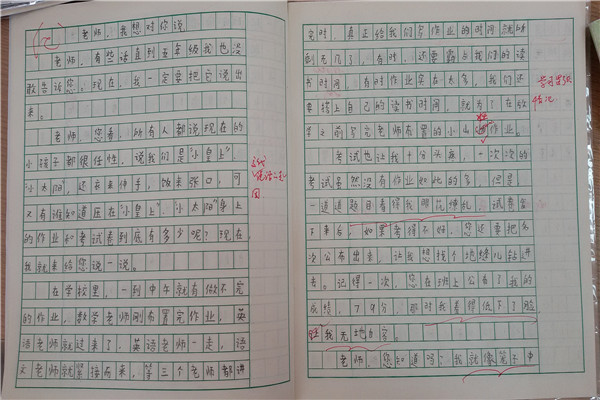 老师，我想对你说
老师，有些话直到五年级我也没
敢告诉您。现在，我一定要把它说出
来。
老师，您看，所有人都说现在的
小孩子都很任性，说我们是“小皇上”、
“小太阳”，还衣来伸手，饭来张口，可
又有谁知道压在“小皇上”、“小太阳”身上
的作业和考试卷到底有多少呢？现在，
我就来给您说一说。
在学校里，一到中午就有做不完
的作业，数学老师刚布置完作业，英
语老师就过来了，英语老师一走，语
文老师就紧接而来，等三个老师都讲
完时，真正给我们写作业的时间就所
剩无几了，有时，还要霸占我们的读
书时间，有时作业实在太多，我们还
要搭上自己的读书时间，就为了在放
学之前写完老师布置的小山 作业。
考试也让我十分头痛，一次次的
考试虽然没有作业如此的多，但是
一道道题目看得我眼花缭乱，试卷写
下来后，如果考得不好，您还要把名
次公布出来，让我想找个地缝儿钻进
去。记得一次，您在班上公布了我的
成绩，79分，那时我羞得低下了脸，
我无地自容。
老师，您知道吗？我就像笼子中
学习 
情况